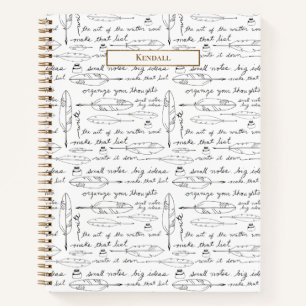 Kendall
make that list
small notes big ideas
organize you thoughts
write
the art of the written word
make that list
write it down
small notes big ideas
organize you thoughts
small notes
big ideas
write
the art of the written word
make that list
write it down
small notes big ideas